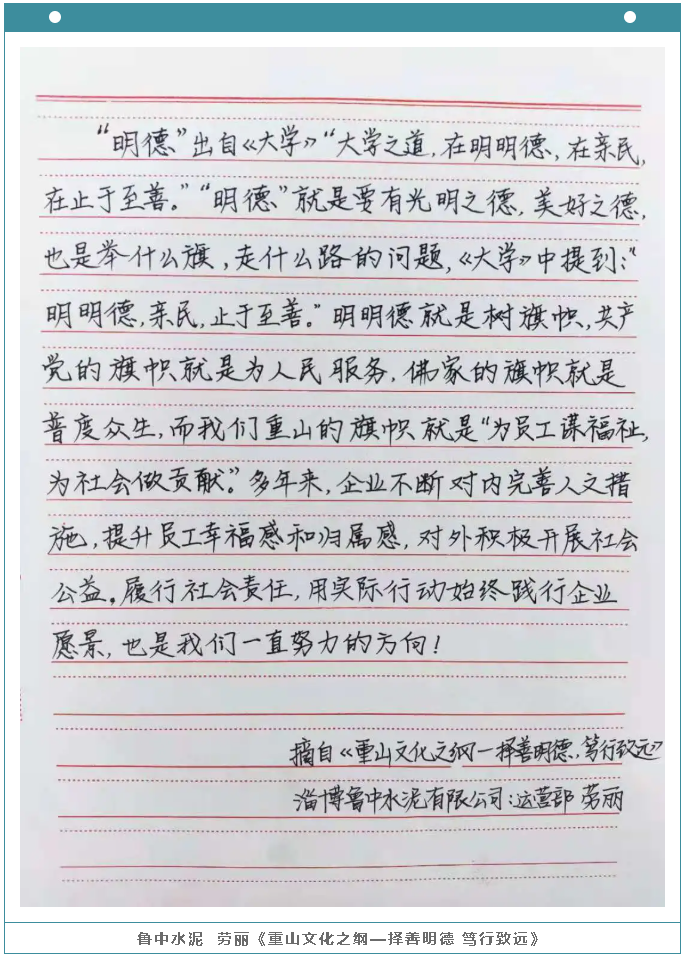 “明德”出自《大学》“大学之道,在明明德,在亲民,
在止于至善。”“明德”就是要有光明之德,美好之德,
也是举什么旗,走什么路的问题,《大学》中提到:“
明明德,亲民,止于至善。”明明德就是树旗帜,共产
党的旗帜就是为人民服务,佛家的旗帜就是
普度众生,而我们重山的旗帜就是“为员工谋福祉,
为社会做贡献”。多年来,企业不断对内完善人文措
施,提升员工幸福感和归属感,对外积极开展社会
公益。履行社会责任,用实际行动始终践行企业
愿景,也是我们一直努力的方向!
摘自《重山文化之纲—择善明德,笃行致远》
淄博鲁中水泥有限公司:运营部 劳丽
鲁中水泥 劳丽《重山文化之纲—择善明德 笃行致远》